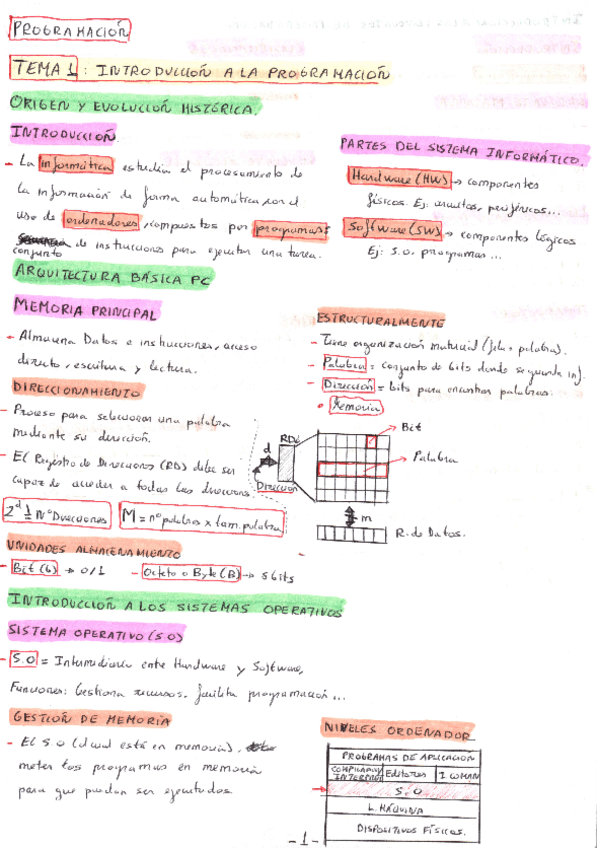 PROGRAMACIÓN
TEMA 1: INTRODUCCIÓN A LA PROGRAMACIÓN
ORIGEN Y EVOLUCIÓN HISTÓRICA.
INTRODUCCIÓN.
- La informática estudia el procesamiento de
la información de forma automática por el
uso de ordenadores, compuestos por programas
conjunto de instrucciones para ejecutar una tarea.
PARTES DEL SISTEMA INFORMÁTICO.
Hardware (HW) → componentes
físicos. Ej: circuitos, periféricos...
Software (SW) → componentes lógicos
Ej: S.O. programas...
ARQUITECTURA BÁSICA PC
MEMORIA PRINCIPAL
- Almacena Datos e instrucciones, acceso
directo, escritura y lectura.
DIRECCIONAMIENTO
- Proceso para seleccionar una palabra
mediante su dirección.
- El Registro de Direcciones (RD) debe ser
capaz de acceder a todas las direcciones.
Nº Direcciones
M = nº palabras x tam. palabra
ESTRUCTURALMENTE
- Tiene organización matricial (fila, palabra).
- Palabra = conjunto de bits donde se guarda inf.
- Dirección = bits para encontrar palabras.
• Memoria
Bit
Palabra
RD
d
Dirección
m
R. de Datos.
UNIDADES ALMACENAMIENTO
- Bit (b) → 0/1
- Octeto o Byte (B) → 8 bits
INTRODUCCIÓN A LOS SISTEMAS OPERATIVOS
SISTEMA OPERATIVO (S.O)
- S.O = Intermediario entre Hardware y Software,
Funciones: Gestiona recursos, facilita programación...
GESTIÓN DE MEMORIA
- El S.O (el cual está en memoria),
meter los programas en memoria
para que puedan ser ejecutados
NIVELES ORDENADOR
PROGRAMAS DE APLICACIÓN
Editores
S.O
L. MÁQUINA
DISPOSITIVOS FÍSICOS.
-1-